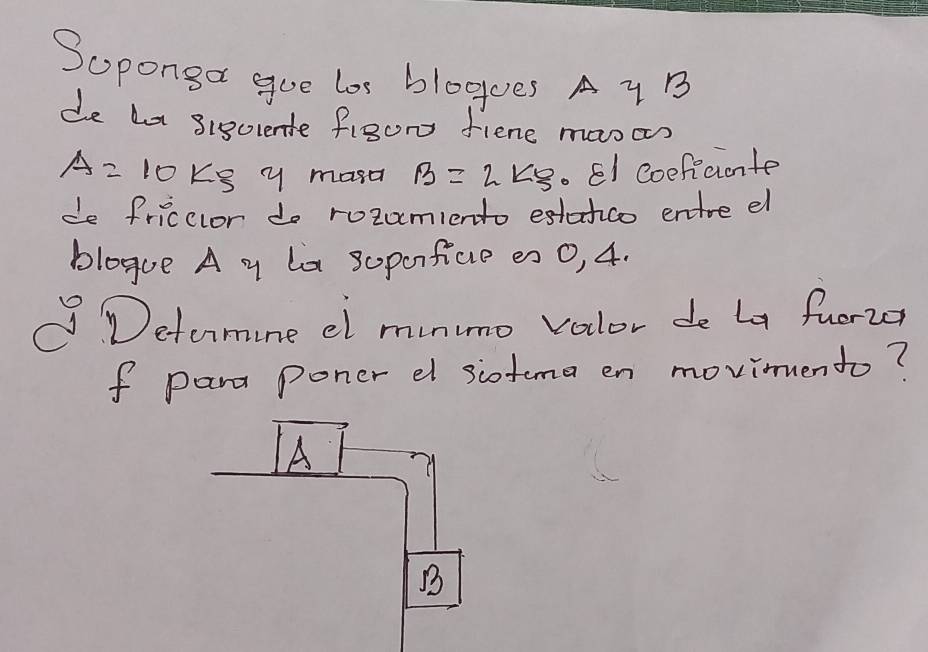 Suponga que los bloques A y B
de la siguiente figura tiene masas
A = 10 Kg y masa B = 2 Kg. El coeficiente
de friccion de rozamiento estatico entre el
bloque A y la superficie es 0,4.
¿ Determine el minimo valor de la fuerza
f para poner el sistema en movimiento?
A
B